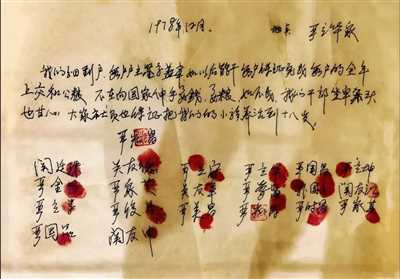 1978年12月。 地点 严立华家
我们分田到户，每户户主签字盖章，如以后能干，每户保证完成每户的全年
上交和公粮，不在向国家伸手要钱要粮，如不成，我们干部坐牢杀头
也甘心，大家社员也保证把我们的小孩养活到十八岁
严宏昌
关廷珠 关友 严立富 严立 严国昌 严立坤
严金 严家 关友 严学昌 国 关友江
严立学 严俊 严美昌 严宏昌 严付昌 严家其
严国品 关友申